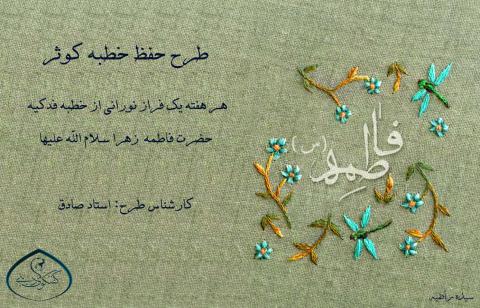 طرح حفظ خطبه کوثر
هر هفته یک فراز نورانی از خطبه فدکیه
حضرت فاطمه زهرا سلام الله علیها
کارشناس طرح: استاد صادق
فاطمه (س)
سیده راضیه